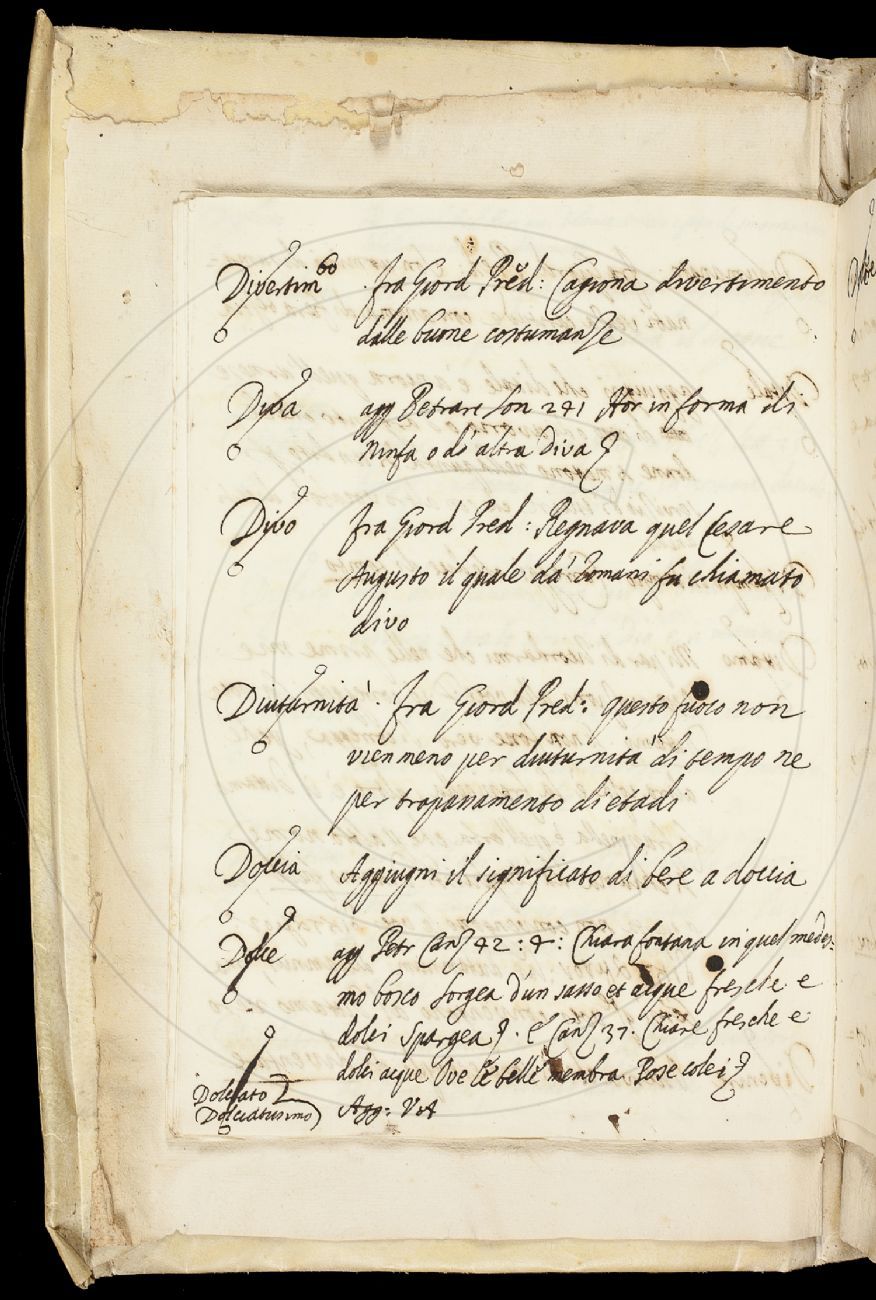 Divertim.to fra Giord Pred: Cagiona divertimento
dalle buone costumanze
Diva agg Petrarc Son 241 Hor in forma di
Ninfa o di altra diva
Divo fra Giord Pred: Regnava quel Cesare
Augusto il quale da' Romani fu chiamato
divo
Diuturnità. fra Giord Pred: questo fuoco non
vien meno per diuturnità di tempo ne
per trapanamento di etadi
Doccia Aggiugni il significato di bere a doccia
Dolce agg Petr Canz 42: 4: Chiara fontana in quel medes-
mo bosco Sorgea d'un sasso et acque fresche e
dolci Spargea. E Canz 37. Chiare fresche e
dolci acque Ove le belle membra Pose colei
Dolciato
Dolciatissimo Agg: V.A